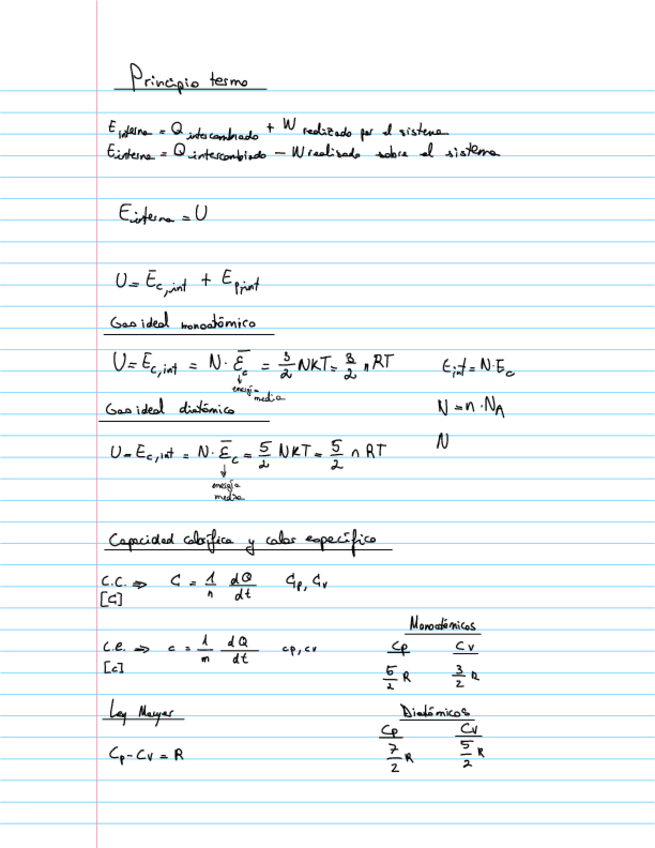 Principio termo
E interna = Q intercambiado + W realizado por el sistema
E interna = Q intercambiado - W realizado sobre el sistema
E interna = U
U = Ec,int + Ep,int
Gas ideal monoatómico
U = Ec,int = N · Ēc = 3/2 NKT = 3/2 nRT
energía media
Eint = N·Ec
N = n · NA
N
Gas ideal diatómico
U = Ec,int = N · Ēc = 5/2 NKT = 5/2 n RT
energía media
Capacidad calorífica y calor específico
C.C. ⇒ C = 1/n dQ/dt Cp, Cv
[C]
C.e. ⇒ c = 1/m dQ/dt cp, cv
[c]
Monoatómicos
Cp Cv
5/2 R 3/2 R
Ley Mayer
Cp - Cv = R
Diatómicos
Cp Cv
7/2 R 5/2 R